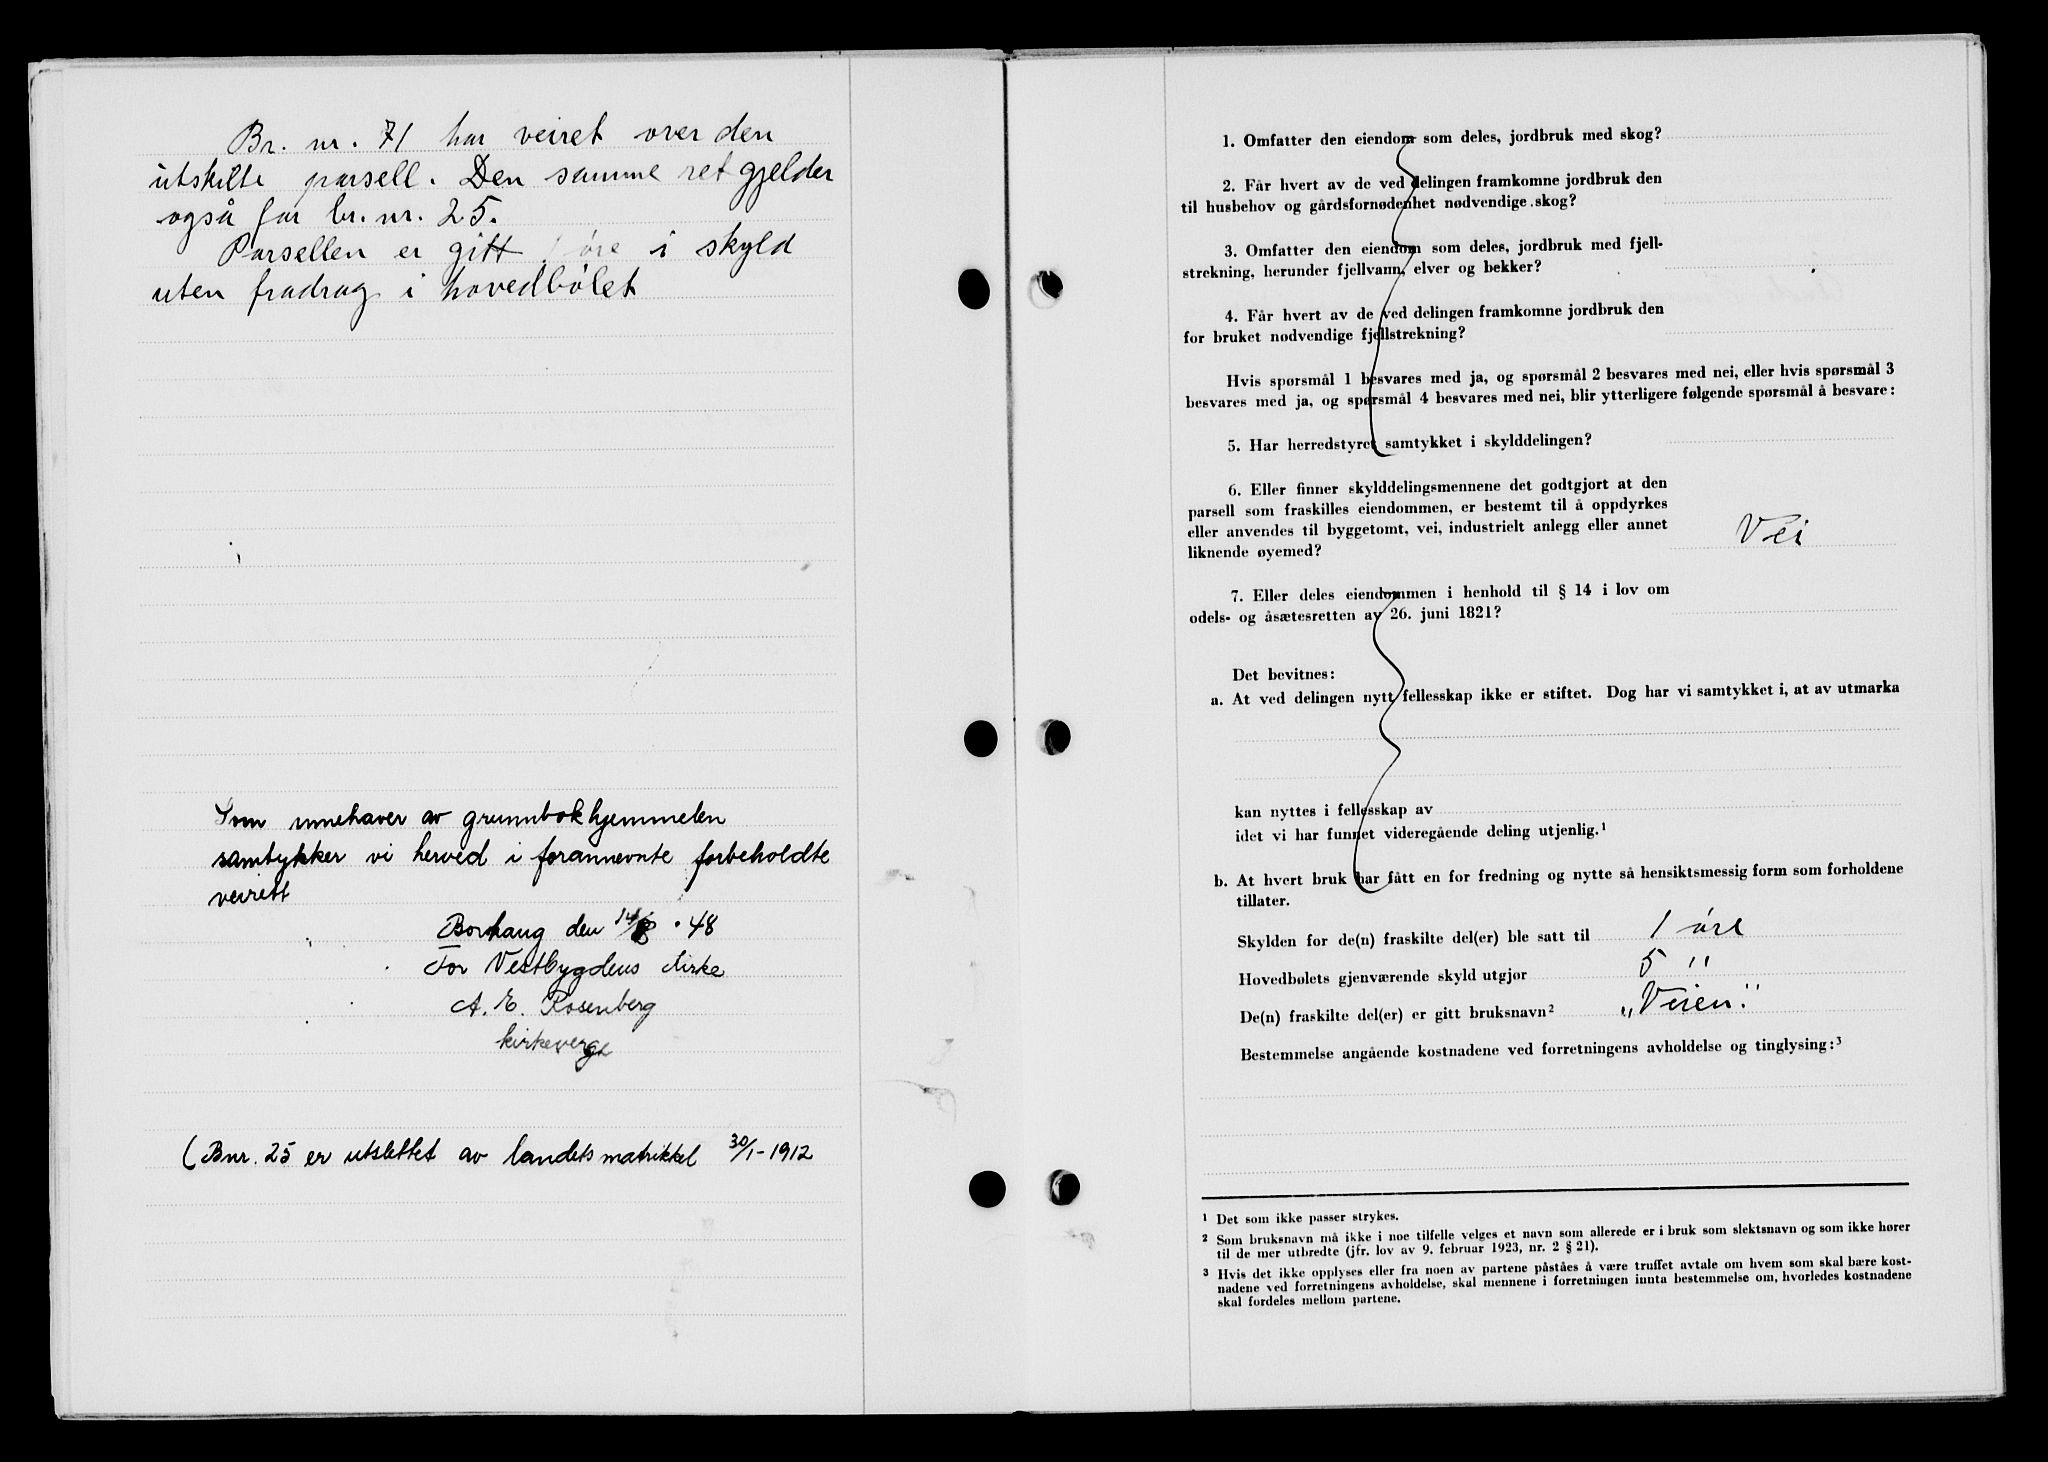 Br. nr. 71 har veiret over den
utskilte parsell. Den samme ret gjelder
også for br. nr. 25.
Parsellen er gitt 1 øre i skyld
uten fradrag i hovedbølet
Som innehaver av grunnbokhjemmelen
samtykker vi herved i forannevnte forbeholdte
veirett
Borhaug den 14/8 . 48
For Vestbygdens kirke
A. E. Rosenberg
kirkeverge
(Bnr. 25 er utslettet av landets matrikkel 30/1-1912
1. Omfatter den eiendom som deles, jordbruk med skog?
2. Får hvert av de ved delingen framkomne jordbruk den
til husbehov og gårdsfornødenhet nødvendige skog?
3. Omfatter den eiendom som deles, jordbruk med fjell-
strekning, herunder fjellvann, elver og bekker?
4. Får hvert av de ved delingen framkomne jordbruk den
for bruket nødvendige fjellstrekning?
Hvis spørsmål 1 besvares med ja, og spørsmål 2 besvares med nei, eller hvis spørsmål 3
besvares med ja, og spørsmål 4 besvares med nei, blir ytterligere følgende spørsmål å besvare:
5. Har herredstyret samtykket i skylddelingen?
6. Eller finner skylddelingsmennene det godtgjort at den
parsell som fraskilles eiendommen, er bestemt til å oppdyrkes
eller anvendes til byggetomt, vei, industrielt anlegg eller annet
liknende øyemed? Vei
7. Eller deles eiendommen i henhold til § 14 i lov om
odels- og åsætesretten av 26. juni 1821?
Det bevitnes:
a. At ved delingen nytt fellesskap ikke er stiftet. Dog har vi samtykket i, at av utmarka
kan nyttes i fellesskap av
idet vi har funnet videregående deling utjenlig.¹
b. At hvert bruk har fått en for fredning og nytte så hensiktsmessig form som forholdene
tillater.
Skylden for de(n) fraskilte del(er) ble satt til 1 øre
Hovedbølets gjenværende skyld utgjør 5 "
De(n) fraskilte del(er) er gitt bruksnavn² „Veien".
Bestemmelse angående kostnadene ved forretningens avholdelse og tinglysing:³
¹ Det som ikke passer strykes.
² Som bruksnavn må ikke i noe tilfelle velges et navn som allerede er i bruk som slektsnavn og som ikke hører
til de mer utbredte (jfr. lov av 9. februar 1923, nr. 2 § 21).
³ Hvis det ikke opplyses eller fra noen av partene påståes å være truffet avtale om hvem som skal bære kost-
nadene ved forretningens avholdelse, skal mennene i forretningen innta bestemmelse om, hvorledes kostnadene
skal fordeles mellom partene.